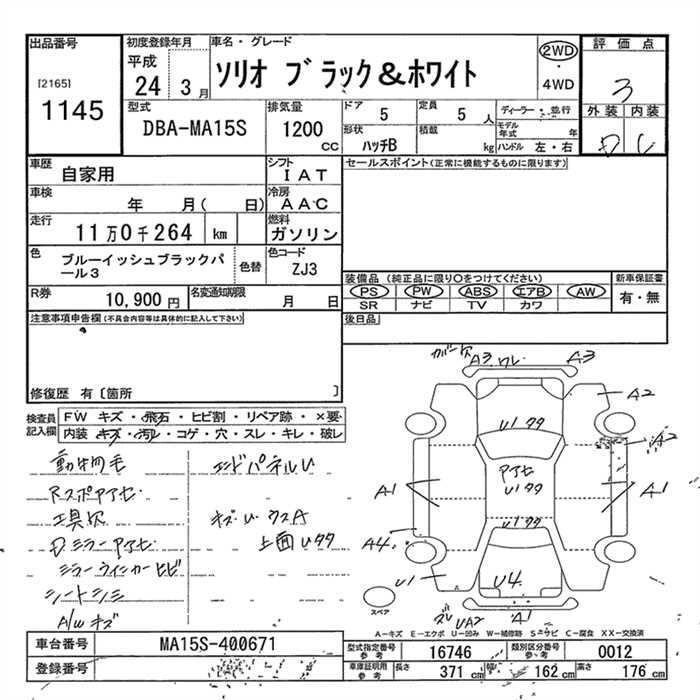 出品番号 初度登録年月 車名・グレード 評価点
[2165] 平成 ソリオ ブラック&ホワイト 2WD 3
1145 24 3月 4WD 外装 内装
型式 排気量 ドア 定員 ディーラー・並行
DBA-MA15S 1200 cc 5 5人 モデル年式 年
形状 積載 ハンドル 左・右
ハッチB kg
車歴 シフト セールスポイント(正常に機能するものに限ります)
自家用 IAT
車検 冷房
年 月( 日) AAC
走行 燃料
11万0千264 km ガソリン
色 色替 色コード
ブルーイッシュブラックパール3 ZJ3
装備品(純正品に限り○をつけてください) 新車保証書
PS PW ABS エアB AW 有・無
SR ナビ TV カワ
R券 名変通知期限
10,900円 月 日
注意事項申告欄(不具合内容等は具体的に記入して下さい) 後日品
修復歴 有〔箇所 〕
検査員記入欄 FW キズ・飛石・ヒビ割・リペア跡・×要
内装 キズ・汚レ・コゲ・穴・スレ・キレ・破レ
動物毛 エンドパネルU
RスポアセA
工具欠 キズU ウスA
Dミラーアセ 上面Uタタ
ミラーウィンカーヒビ
シートシミ
A/Wキズ
カバー欠 A3 ワレ A3
A2
U1タタ
A2
アセ
U1タタ
A1 A1
U1タタ
A4
U1 U4
スペア UA2 A1
A-キズ E-エクボ U-凹み W-補修跡 S-サビ C-腐食 XX-交換済
車台番号 MA15S-400671
登録番号
型式指定番号 参考 16746 類別区分番号 参考 0012
車庫証明用 参考 長さ 371cm 幅 162cm 高さ 176cm